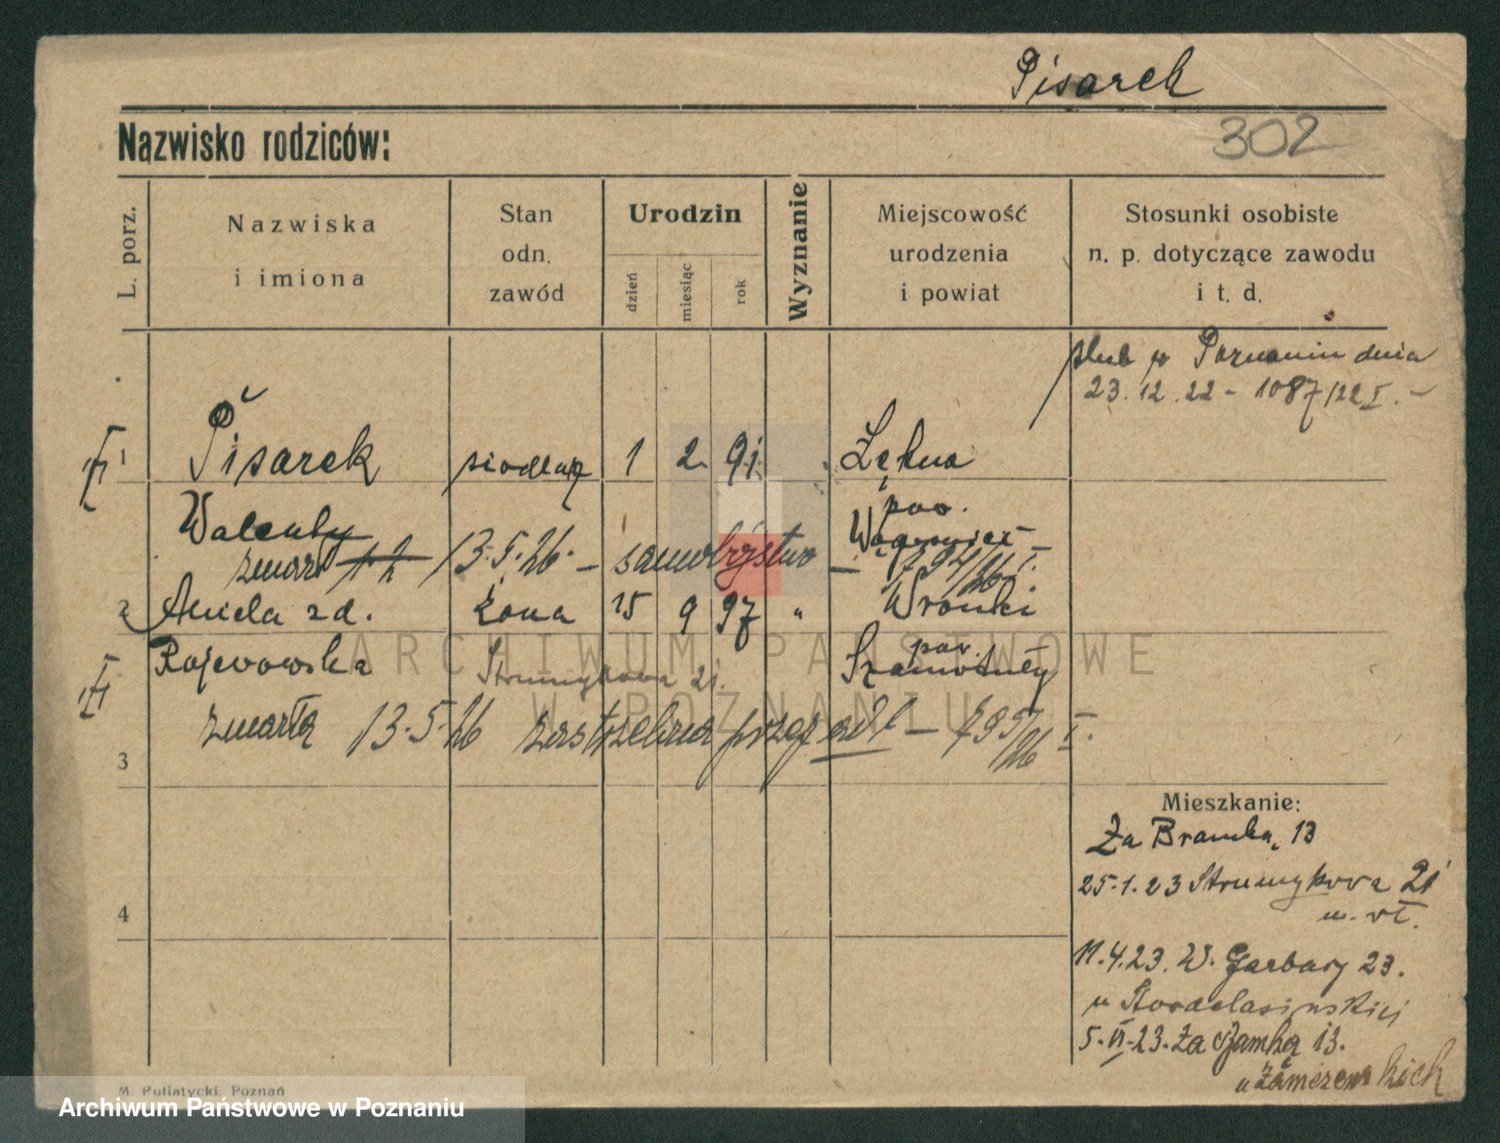 Pisarek
Nazwisko rodziców:
302
L. porz.
Nazwiska
i imiona
Stan
odn.
zawód
Urodzin
dzień
miesiąc
rok
Wyznanie
Miejscowość
urodzenia
i powiat
Stosunki osobiste
n. p. dotyczące zawodu
i t. d.
ślub w Poznaniu dnia
23.12.22 - 1087/22 I. -
1 Pisarek siodlarz 1 2 91 Łękno
Walenty pow.
Wągrowiec
zmarł 13.5.26 - samobójstwo - 794/26 I.
2 Aniela zd. żona 15 9 97 " Wronki
Rajewowska pow.
Strumykowa 21. Szamotuły
zmarła 13.5.26 zastrzelona przez odl - 795/26 I.
3
Mieszkanie:
Za Bramką 13
25.1.23 Strumykowa 21
m. wł.
4
11.4.23. W. Garbary 23.
u
5.VI.23. Za Bramką 13.
u
M. Putiatycki, Poznań
ARCHIWUM PAŃSTWOWE
W POZNANIU
Archiwum Państwowe w Poznaniu